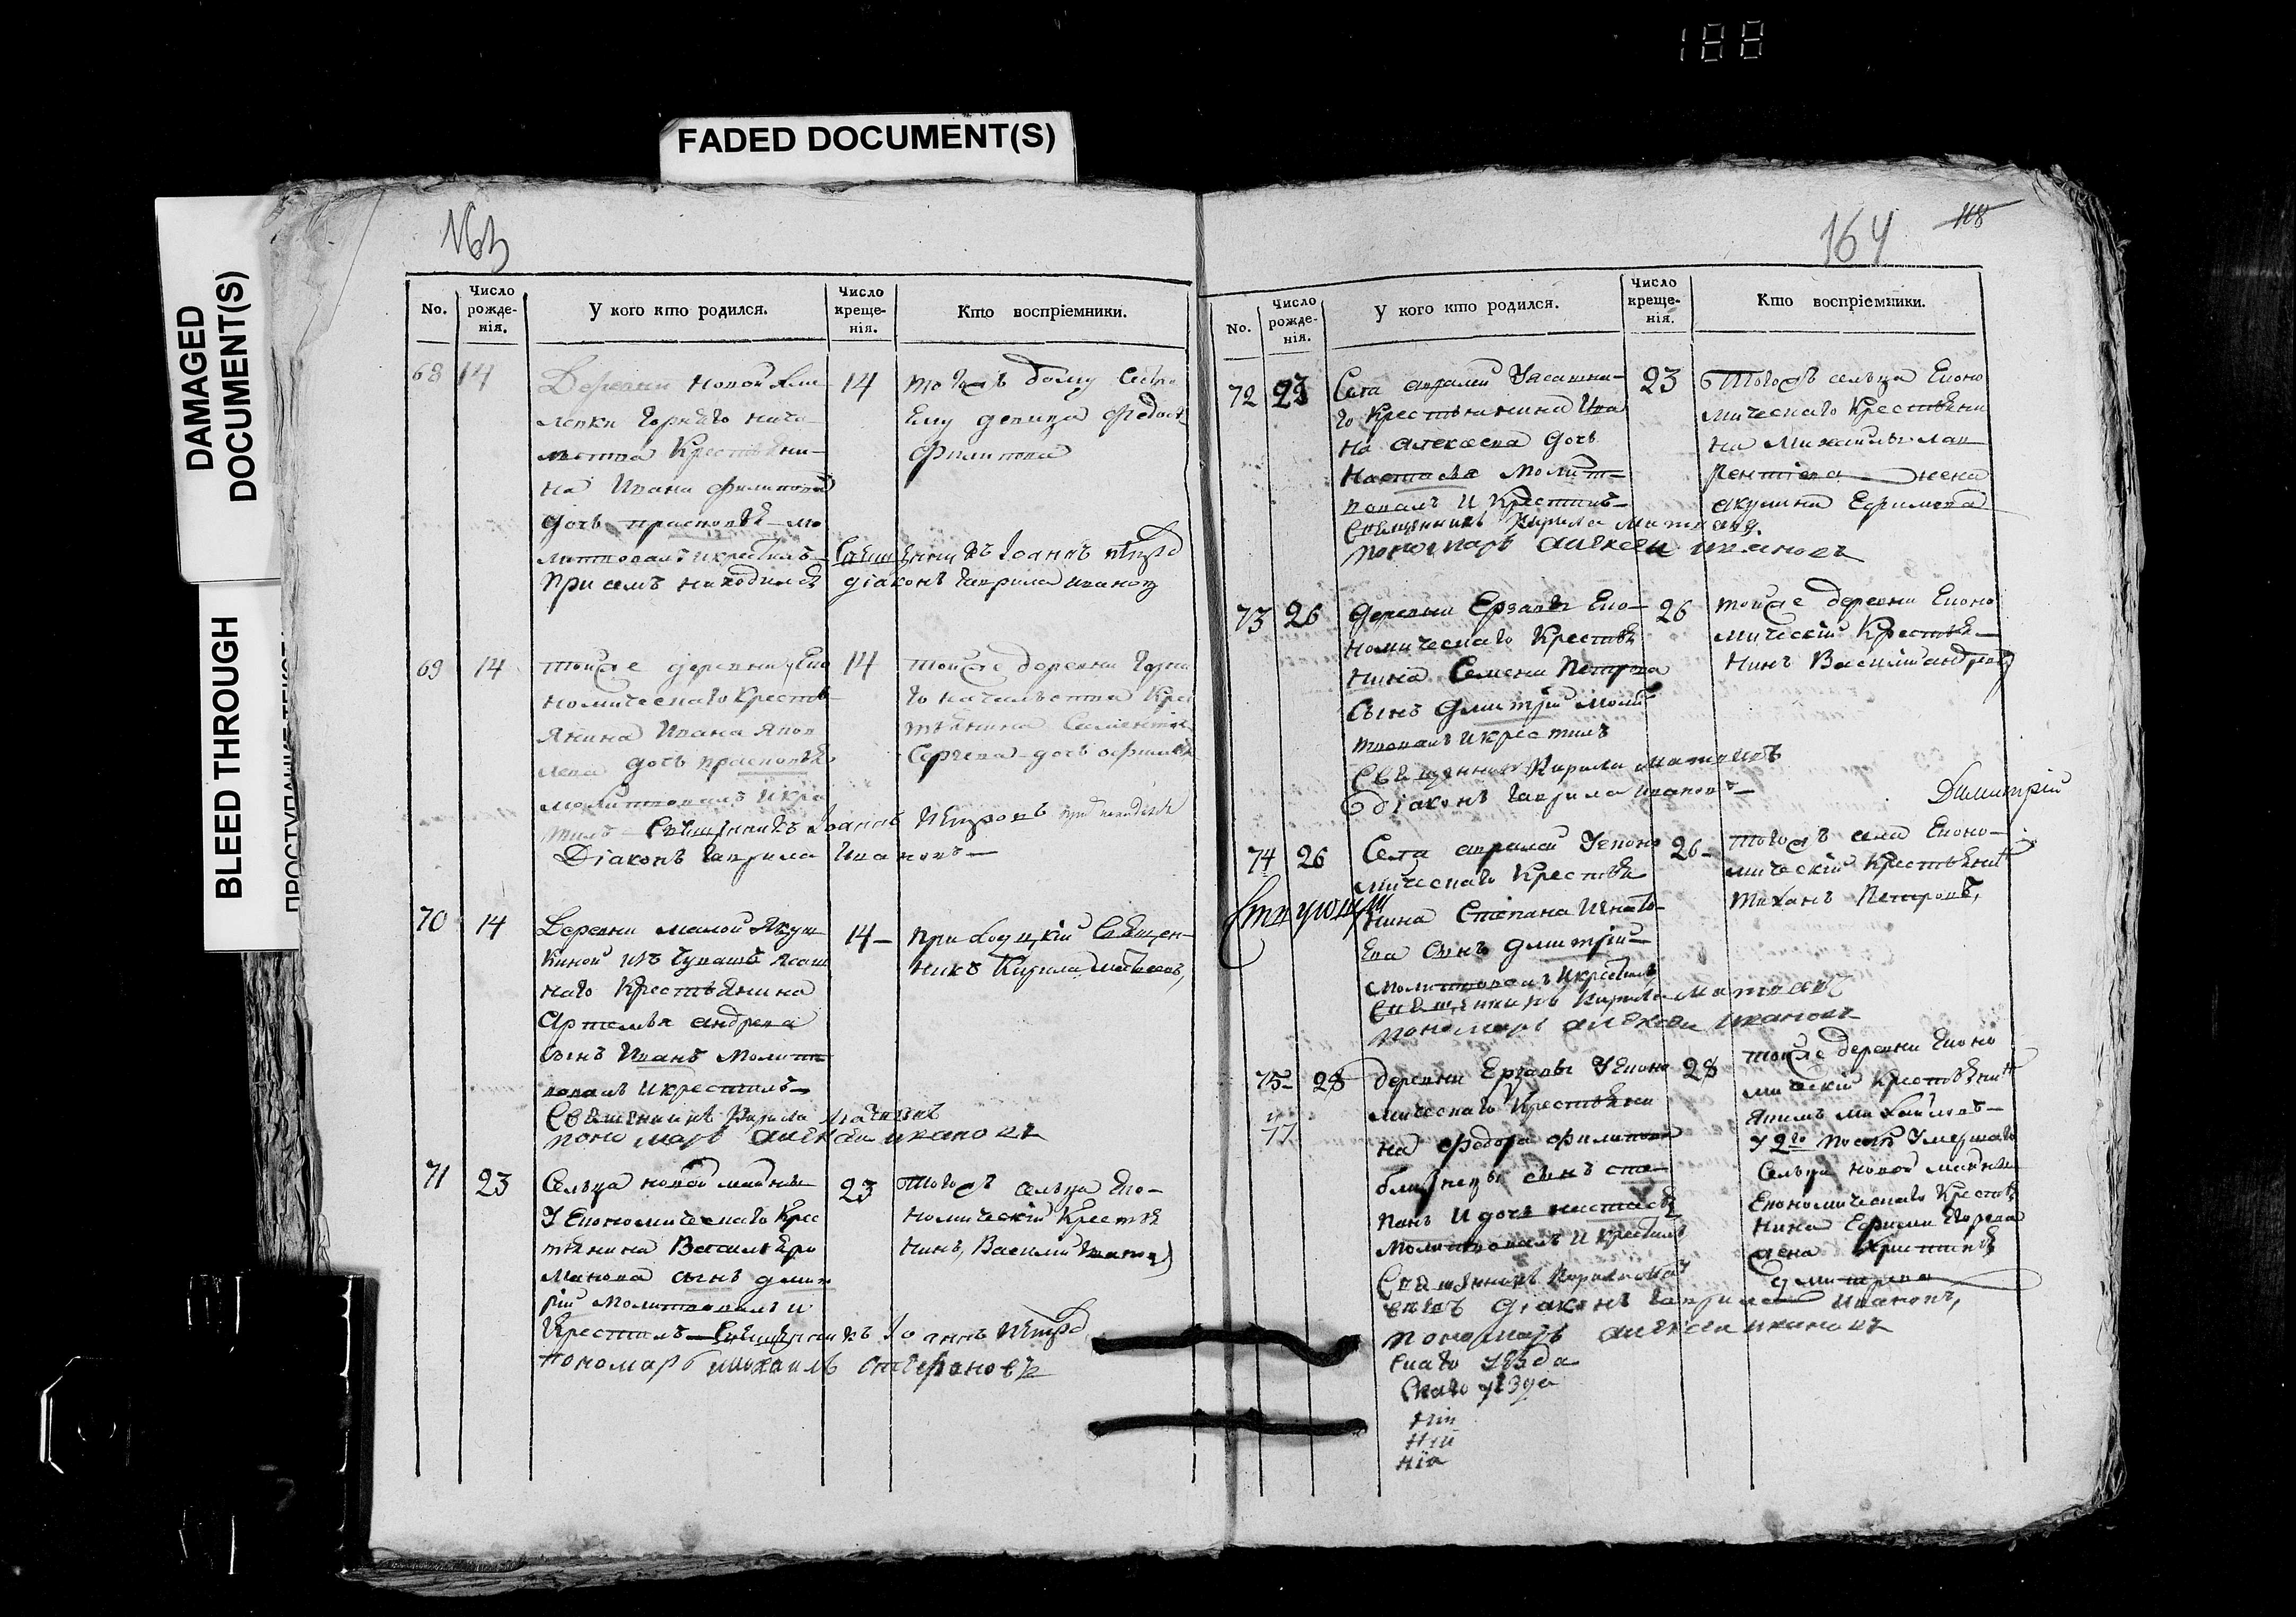 188
FADED DOCUMENT(S)
DAMAGED
DOCUMENT(S)
BLEED THROUGH
163
No.
Число рожде-нія.
У кого кто родился.
Число креще-нія.
Кто воспріемники.
68 14
Деревни новой
горнаго нача
Крестьяни
на Ивана филипова
дочь прасковья мо
литвовалъ и крестилъ
При семъ находился
14
тогожъ дому
ему девица федось
филипова
Священникъ Іоаннъ петро
діаконъ гаврила иванов
69 14
тойже деревни Еко
номическаго Кресть
янина Ивана Яков
лева дочь прасковья
молитвовалъ и кре
стилъ Священникъ Іоаннъ Петровъ
Діаконъ гаврила Ивановъ
14
тойже деревни горна
го началства Крес
тьянина
Сергева дочь
70 14
Деревни малой Якуш
киной изъ чувашъ ясаш
наго Крестьянина
Артемья андреева
сынъ Иванъ Молит
вовалъ и крестилъ
Священникъ Кирила Матвеевъ
пономарь алексеи ивановъ
14
приходцкій Священ
никъ Кирила Матвеевъ,
71 23
Сельца новой майны
У Економическаго Крес
тьянина Василья Ер
макова сынъ дмит
рій Молитвовалъ и
Крестилъ Священникъ Іоаннъ Петро
пономарь михаилъ стефановъ
23
Тогожъ сельца Еко
номическій Крестья
нинъ, Василий Иванов
164
118
No.
Число рожде-нія.
У кого кто родился.
Число креще-нія.
Кто воспріемники.
72 23
Села авралей У ясашна
го Крестьянина Ива
на алексеева дочь
Настасья Молит
вовалъ и Крестилъ
Священникъ Кирила матвеев
пономарь алексеи ивановъ
23
Тогожъ сельца Еконо
мическаго Крестьяни
на Михаилы лав
рентіева жена
акулина Ефимова
73 26
деревни Ерзавы Еко
номическаго Крестья
нина Семена Петрова
Сынъ дмитрій Моли
твовалъ и крестилъ
Священникъ Кирила матвеевъ
діаконъ гаврила ивановъ
26
тойже деревни Еконо
мическій Крестья
нинъ Василий андреев
Димитрій
74 26
Села авралей У еконо
мическаго Крестья
нина Степана Игнать
ева сынъ дмитрій
молитвовалъ и крестилъ
Священникъ Кирила Матвеевъ
пономарь алексеи ивановъ
26
тогожъ села Еконо
мическій Крестьянинъ
Петровъ,
75 28
и
77
деревни Ерзавы У Еконо
мическаго Крестьяни
на федора филипова
близнецы сынъ сте
панъ и дочь настасья
молитвовалъ и крестилъ
Священникъ Кирила Мат
веевъ діаконъ гаврила ивановъ,
пономарь алексеи ивановъ
скаго уезда
скаго уезда
нии
нии
нія
28
тойже деревни Еконо
мическій Крестьянинъ
Якимъ михайловъ
У 2го после Умершаго
Сельца новой майны
Економическаго Крестья
нина Ефима Егорова
жена Христинья
дмитрева